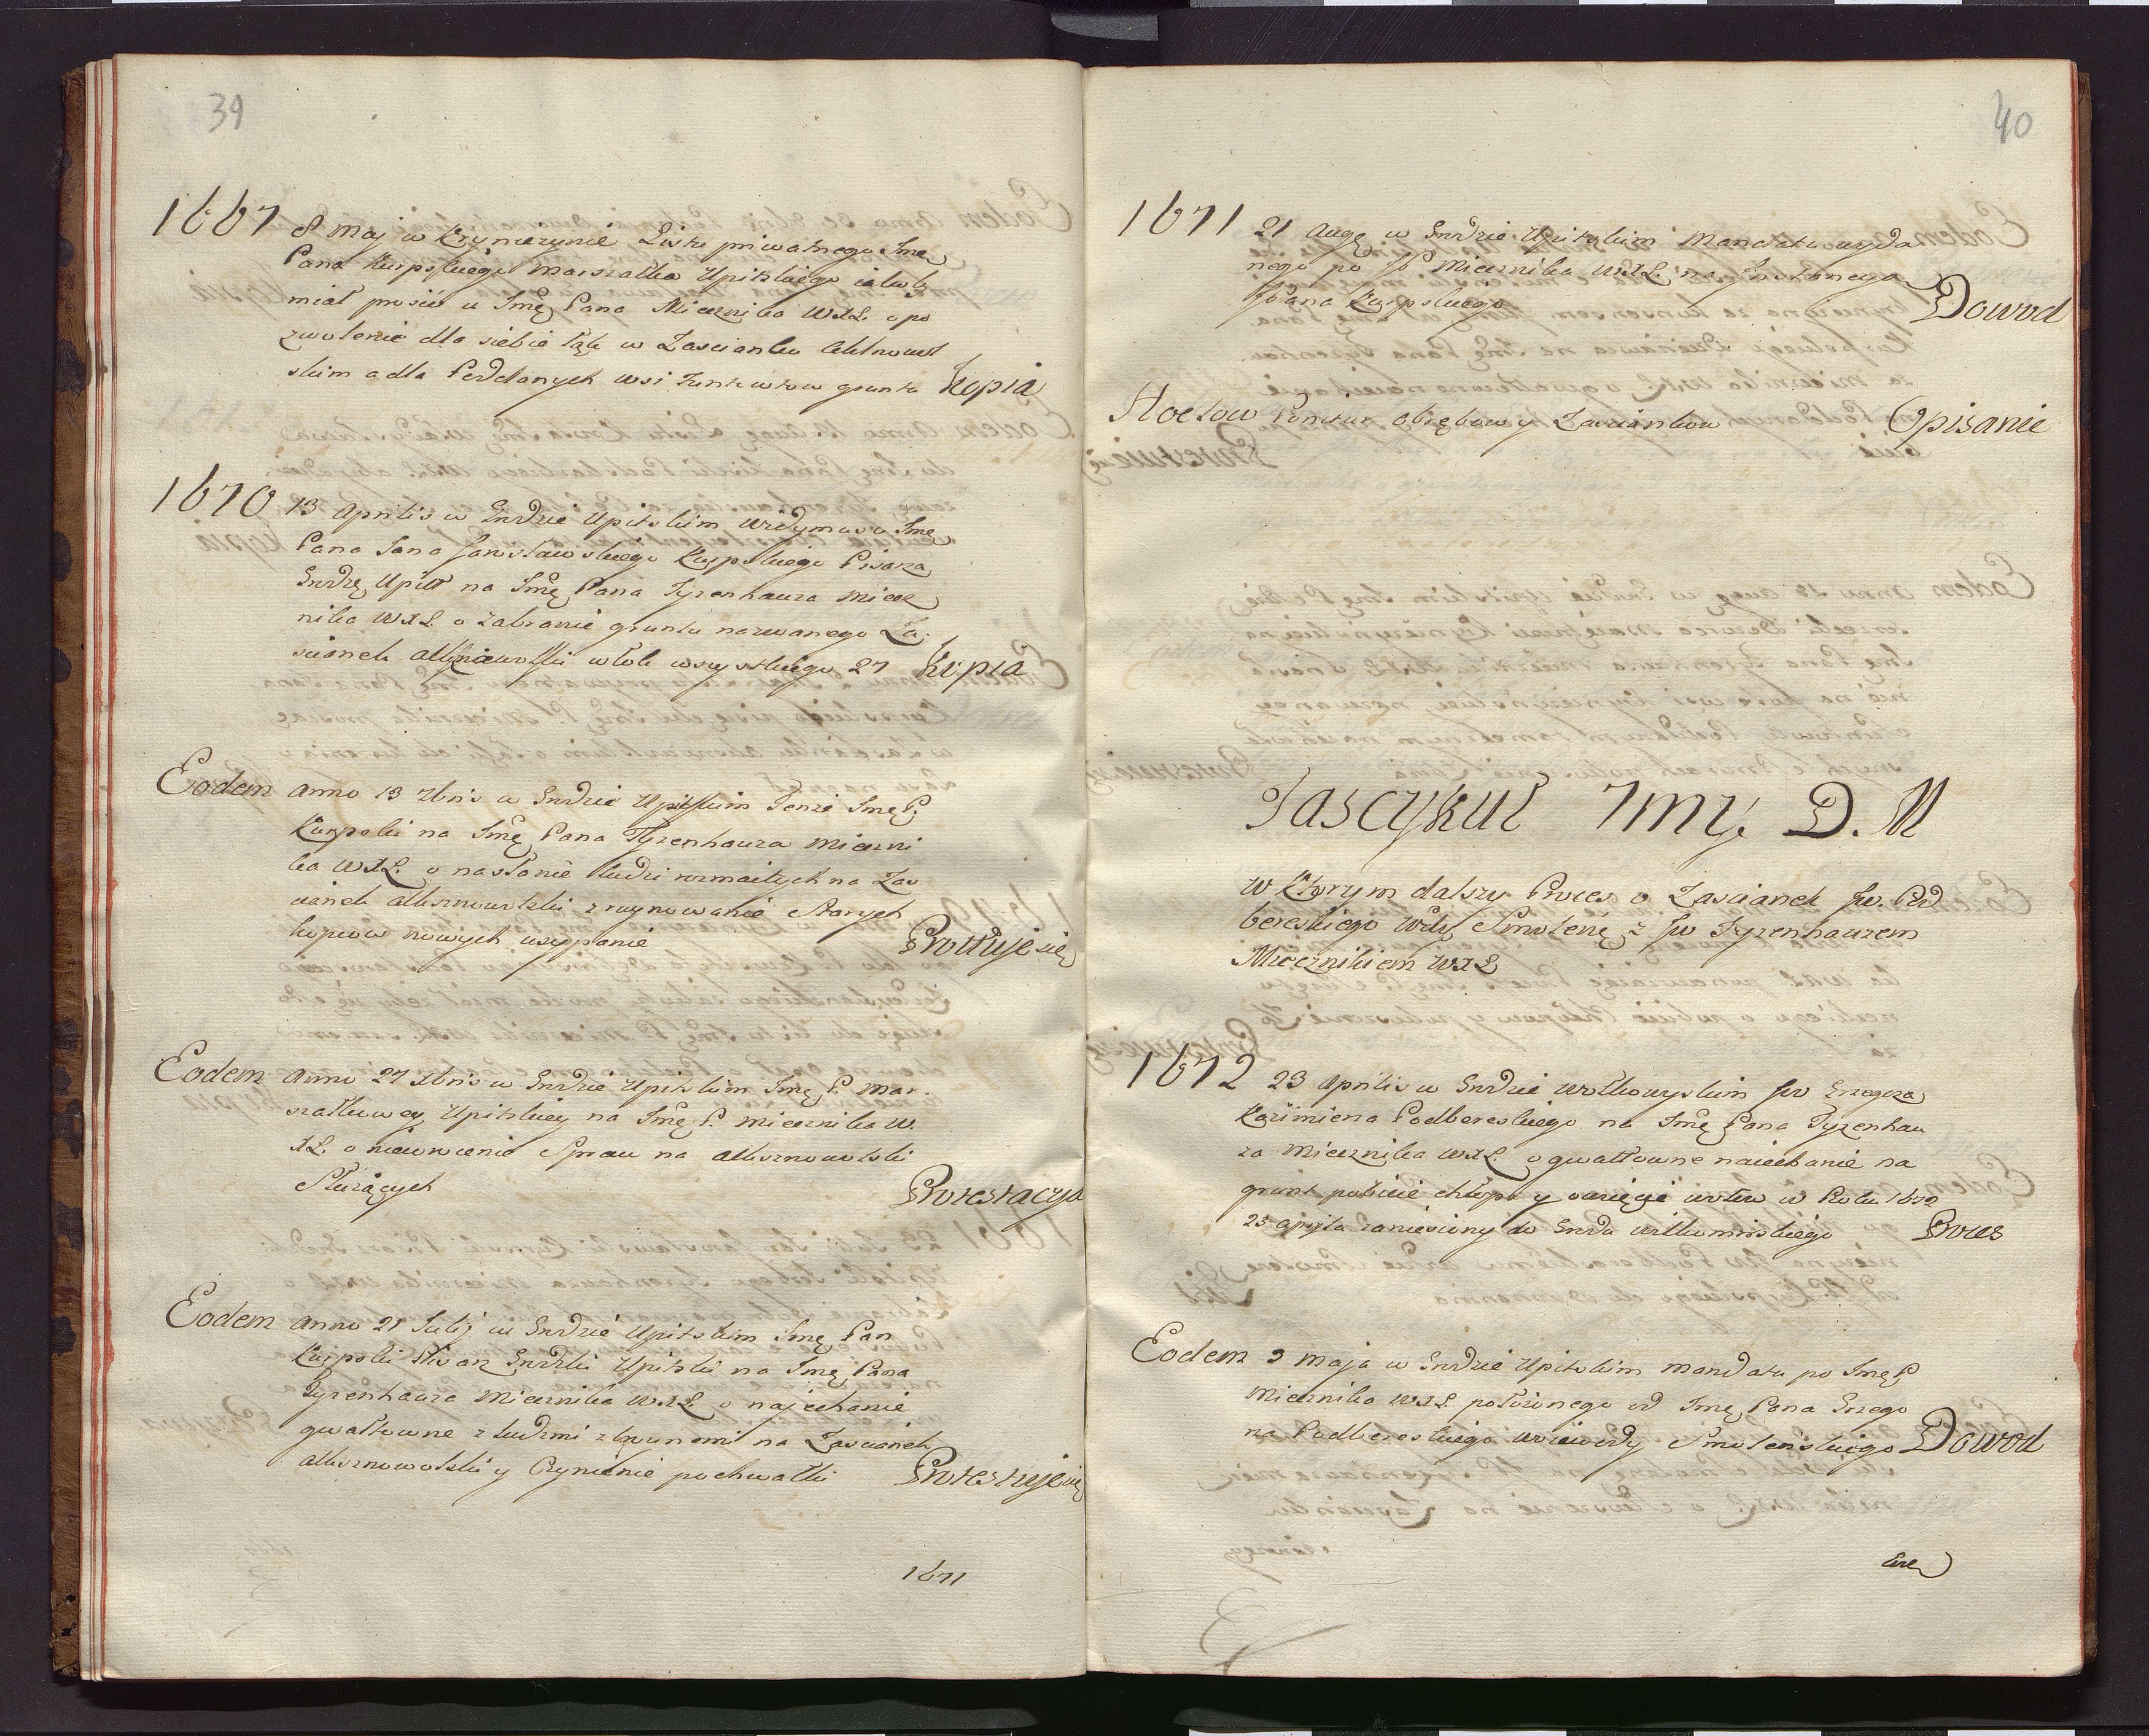 39
1667 8 Maj w Kryniczynie Listu priwatnego Imę
Pana Karpskiego Marszałka Upitskiego jakoby
miał prosić u Imę Pana Miecznika WXL. o po
zwolenie dla siebie łąk w Zascianku
skim a dla Poddanych wsi gruntu Kopia
1670 13 Aprilis w Grodzie Upitskim Widymus u Imę
Pana Jana Jarosławskiego Karpskiego Pisarza
Grodzę Upitt na Imę Pana Tyzenhauza Miecz
nika WXL o zabranie gruntu nazwanego Za-
scianek włok wszystkiego 27 Kopia
Eodem Anno 13 Xbris w Grodzie Upitskim Tenże Imę P.
Karpski na Imę Pana Tyzenhauza Mieczni
ka WXL. o nasłanie ludzi rozmaitych na Zas
cianek zruynowanie Starych
kopcow nowych usypanie się
Eodem Anno 27 Xbris w Grodzie Upitskim Imę P. Mar-
szałkowey Upitskiey na Imę P. Miecznika W.
XL. o niewrocenie Spraw na
Służących Protestacya
Eodem Anno 21 Julij w Grodzie Upitskim Imę Pan
Karpski Pisarz Grodzki Upitski na Imę Pana
Tyzenhauza Miecznika WXL o najechanie
gwałtowne z ludzmi zbroynemi na Zascianek
y Czynienie pochwałki Protestuje się
1671
40
1671 21 Augę w Grodzie Upitskim Mandatu wyda
nego po JP Miecznika WXL. na Instancyą
JPana Karpskiego Dowod
Zasciankow Opisanie
Fascykuł 7my. D. M
w Ktorym dalszy Proces o Zascianek Jw. Pod
bereskiego Wdy Smolenę z Jw Tyzenhauzem
Miecznikiem WXL
1672 23 Aprilis w Grodzie Wołkowyskim Jw Grzegorza
Kazimierza Podbereskiego na Imę Pana Tyzenhau
za Miecznika WXL. o gwałtowne naiechanie na
grunt pobicie chłopa y wzięcie wołow w Roku 1672
23 apryla zaniesiony do Grodu Proces
Eodem 2 Maja w Grodzie Upitskim Mandatu po Imę P
Miecznika WXL położonego od Imę Pana Grzego
rza Podbereskiego Woiewody Smolenskiego Dowod